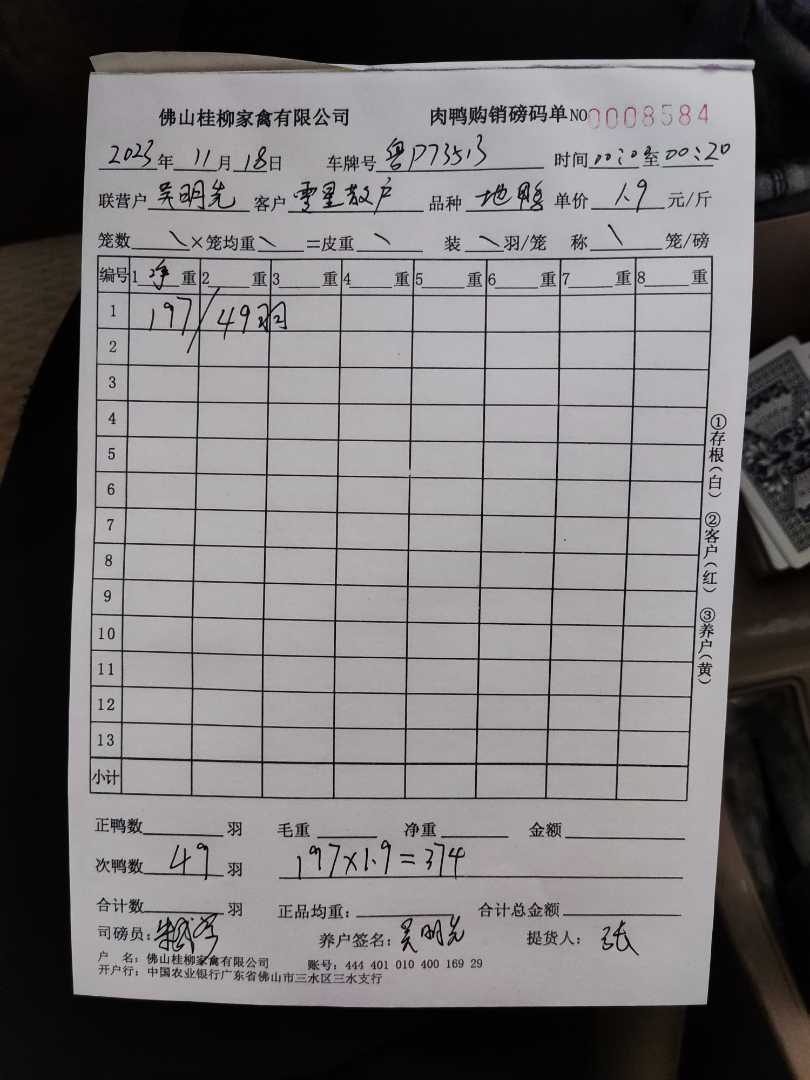 佛山桂柳家禽有限公司 肉鸭购销磅码单 NO 0008584
2023年11月18日 车牌号 粤P73513 时间 00:00至00:20
联营户 吴明先 客户 零星散户 品种 地鸭 单价 1.9 元/斤
笼数 \ ×笼均重 \ =皮重 \ 装 \ 羽/笼 称 \ 笼/磅
编号 1 净 重 2 重 3 重 4 重 5 重 6 重 7 重 8 重
1 197/49羽
2
3
4
5
6
7
8
9
10
11
12
13
小计
①存根(白) ②客户(红) ③养户(黄)
正鸭数 羽 毛重 净重 金额
次鸭数 49 羽 197×1.9=374
合计数 羽 正品均重: 合计总金额
司磅员: 养户签名: 吴明先 提货人: 张
户 名: 佛山桂柳家禽有限公司 账号: 444 401 010 400 169 29
开户行: 中国农业银行广东省佛山市三水区三水支行